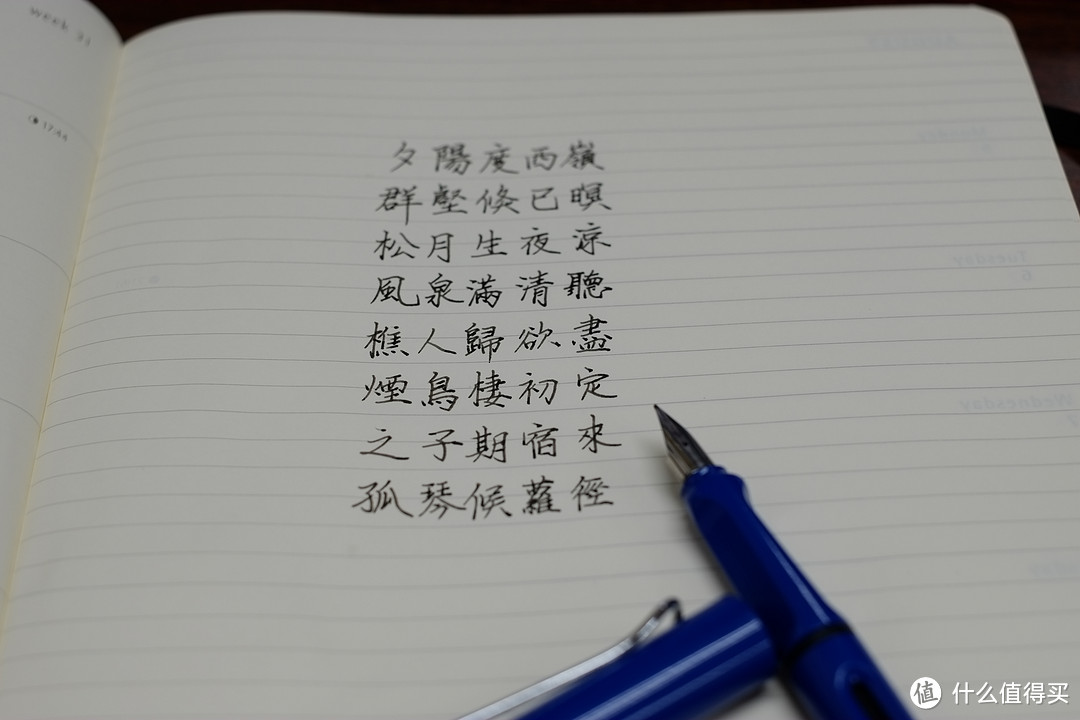 week 31
17:44
夕陽度西嶺
群壑倏已暝
松月生夜涼
風泉滿清聽
樵人歸欲盡
煙鳥棲初定
之子期宿來
孤琴候蘿徑
Tuesday
6
Wednesday
值 什么值得买